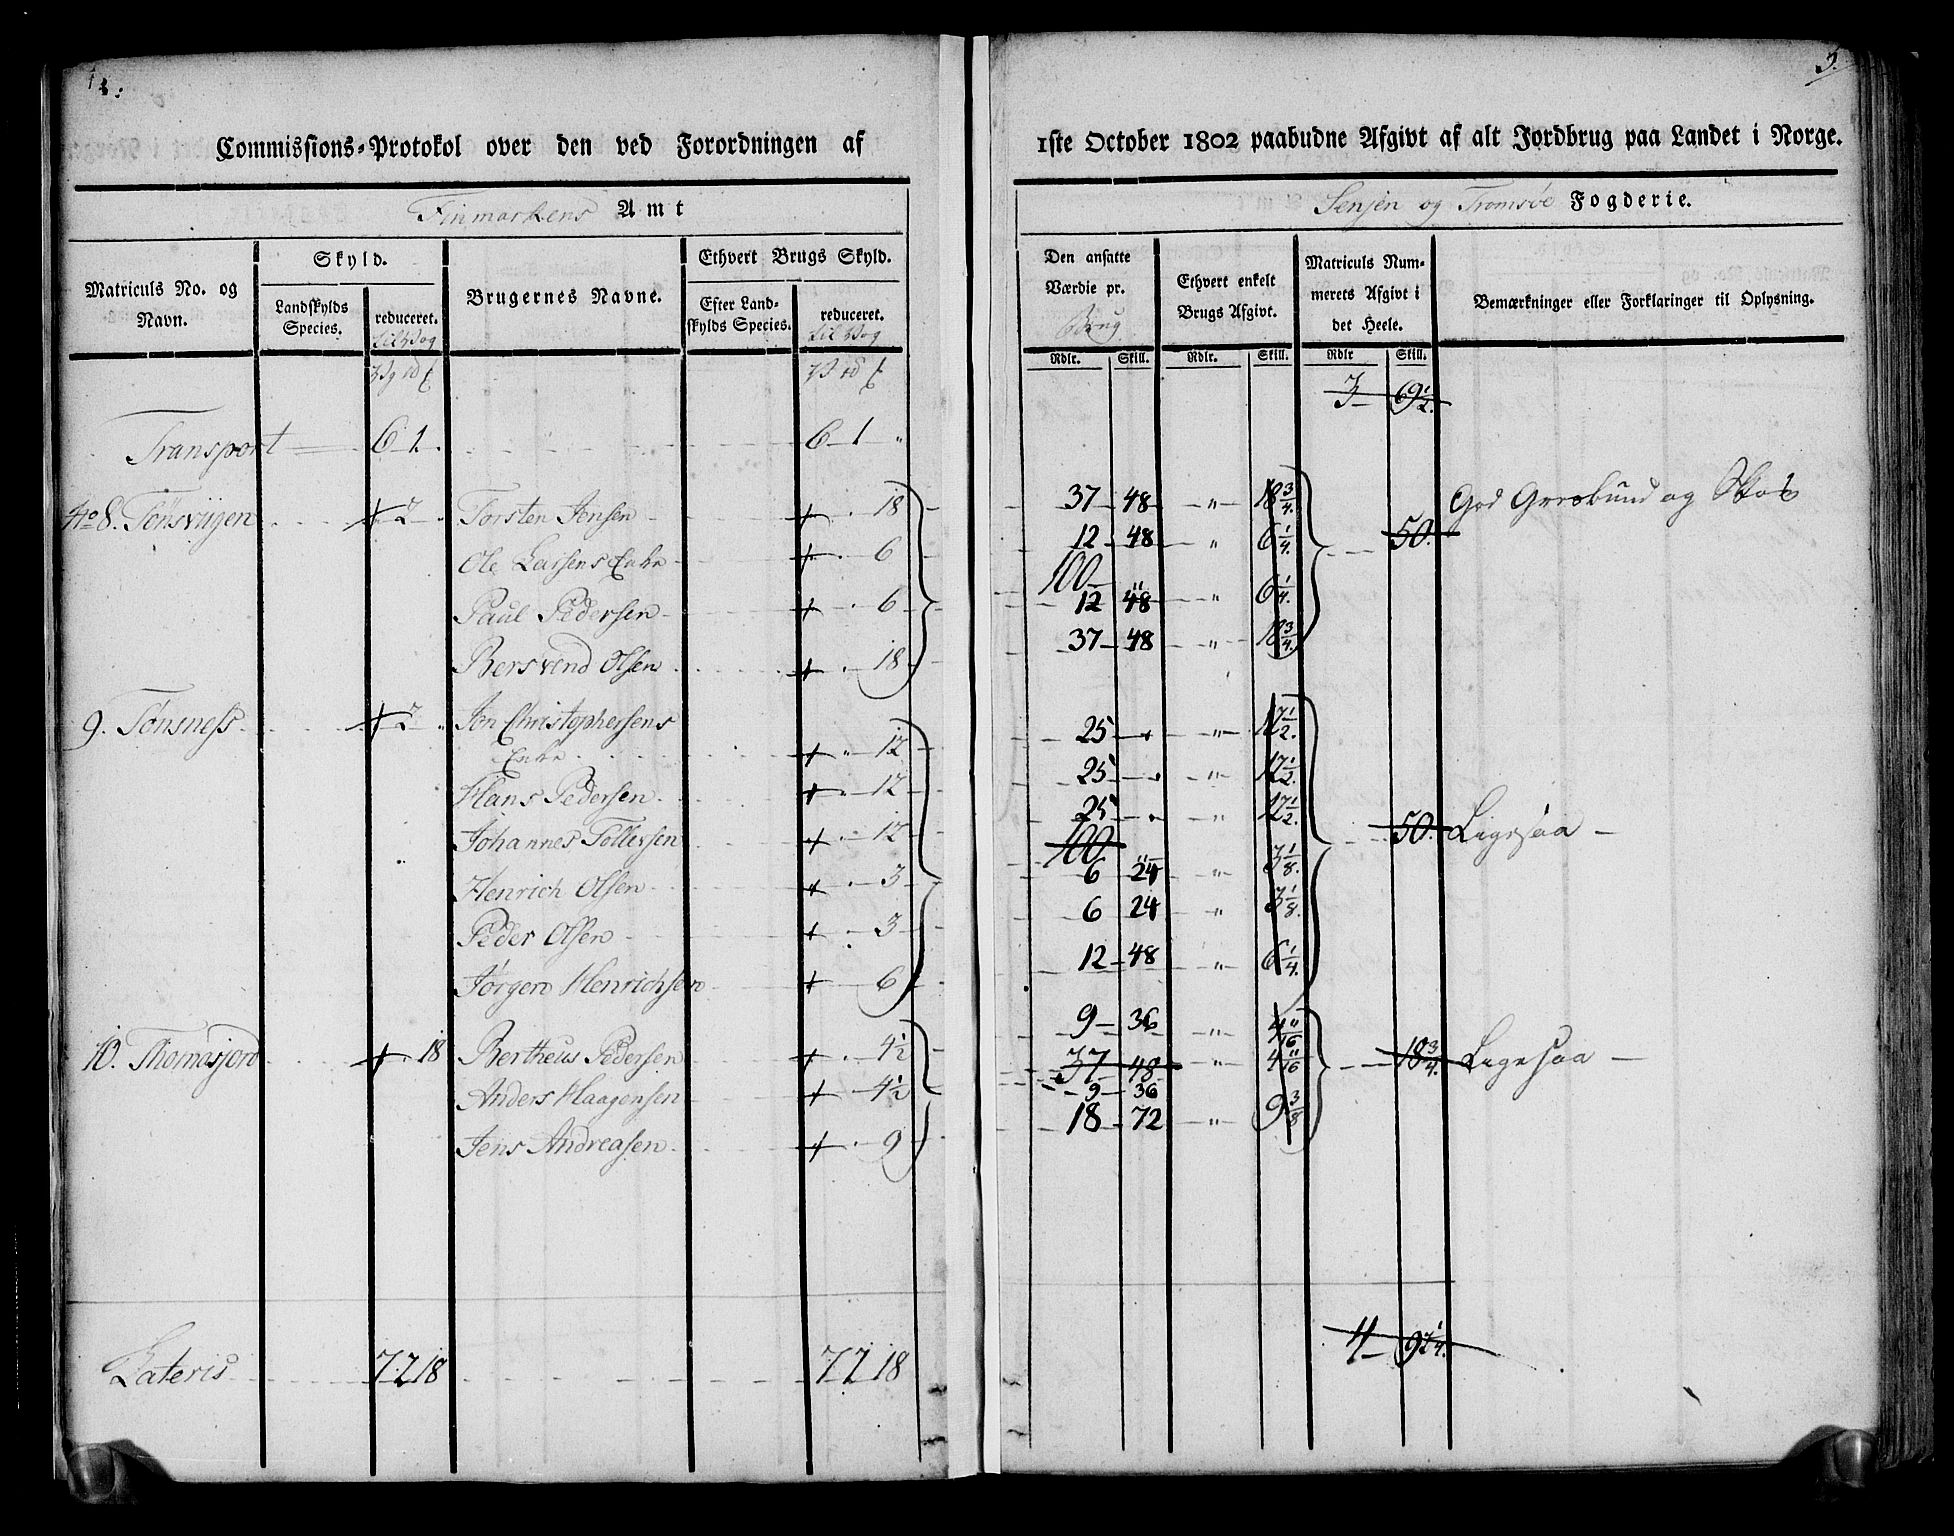 5.
Commissions-Protokol over den ved Forordningen af 1ste October 1802 paabudne Afgivt af alt Jordbrug paa Landet i Norge.
Finmarkens Amt
Senjen og Tromsöe Fogderie.
Matriculs No. og Navn.
Skyld.
Landskylds Species.
reduceret.
til Vog
Brugernes Navne.
Ethvert Brugs Skyld.
Efter Landskylds Species.
reduceret.
til Vog
Den ansatte Værdie pr. Brug
Ethvert enkelt Brugs Afgivt.
Matriculs Nummerets Afgivt i det Heele.
Bemærkninger eller Forklaringer til Oplysning.
Rdlr. Skill. Rdlr. Skill. Rdlr Skill.
3 6 9½.
Transport 6 1 . 6 1 "
No 8. Tönsvügen 2 Torsten Jensen 18 37 48 " 18¾. 50. God Græsbund og Skov
Ole Larsens Enke 6 12 48 " 6¼.
100
Paul Pedersen 6 12 48 " 6¼.
Bersvend Olsen 18 37 48 " 18¾.
9. Tönsness 2 " Jon Christophersens
Enke 12 25 " 12½.
Hans Pedersen 12 25 " 12½.
Johannes Tollersen 12 25 " 12½.
100 50. Ligesaa
Henrich Olsen 3 6 24 " 3⅛.
Peder Olsen 3 6 24 " 3⅛.
Jörgen Henrichsen 6 12 48 " 6¼.
10. Thomasjord 18 Bertheus Pedersen 4½ 9 36 " 4 11/16 18¾. Ligesaa
37 48
Anders Haagensen 4½ 9 36 " 4 11/16
Jens Andreasen 9 18 72 " 9⅜
Lateris 7 2 18 7 2 18 4